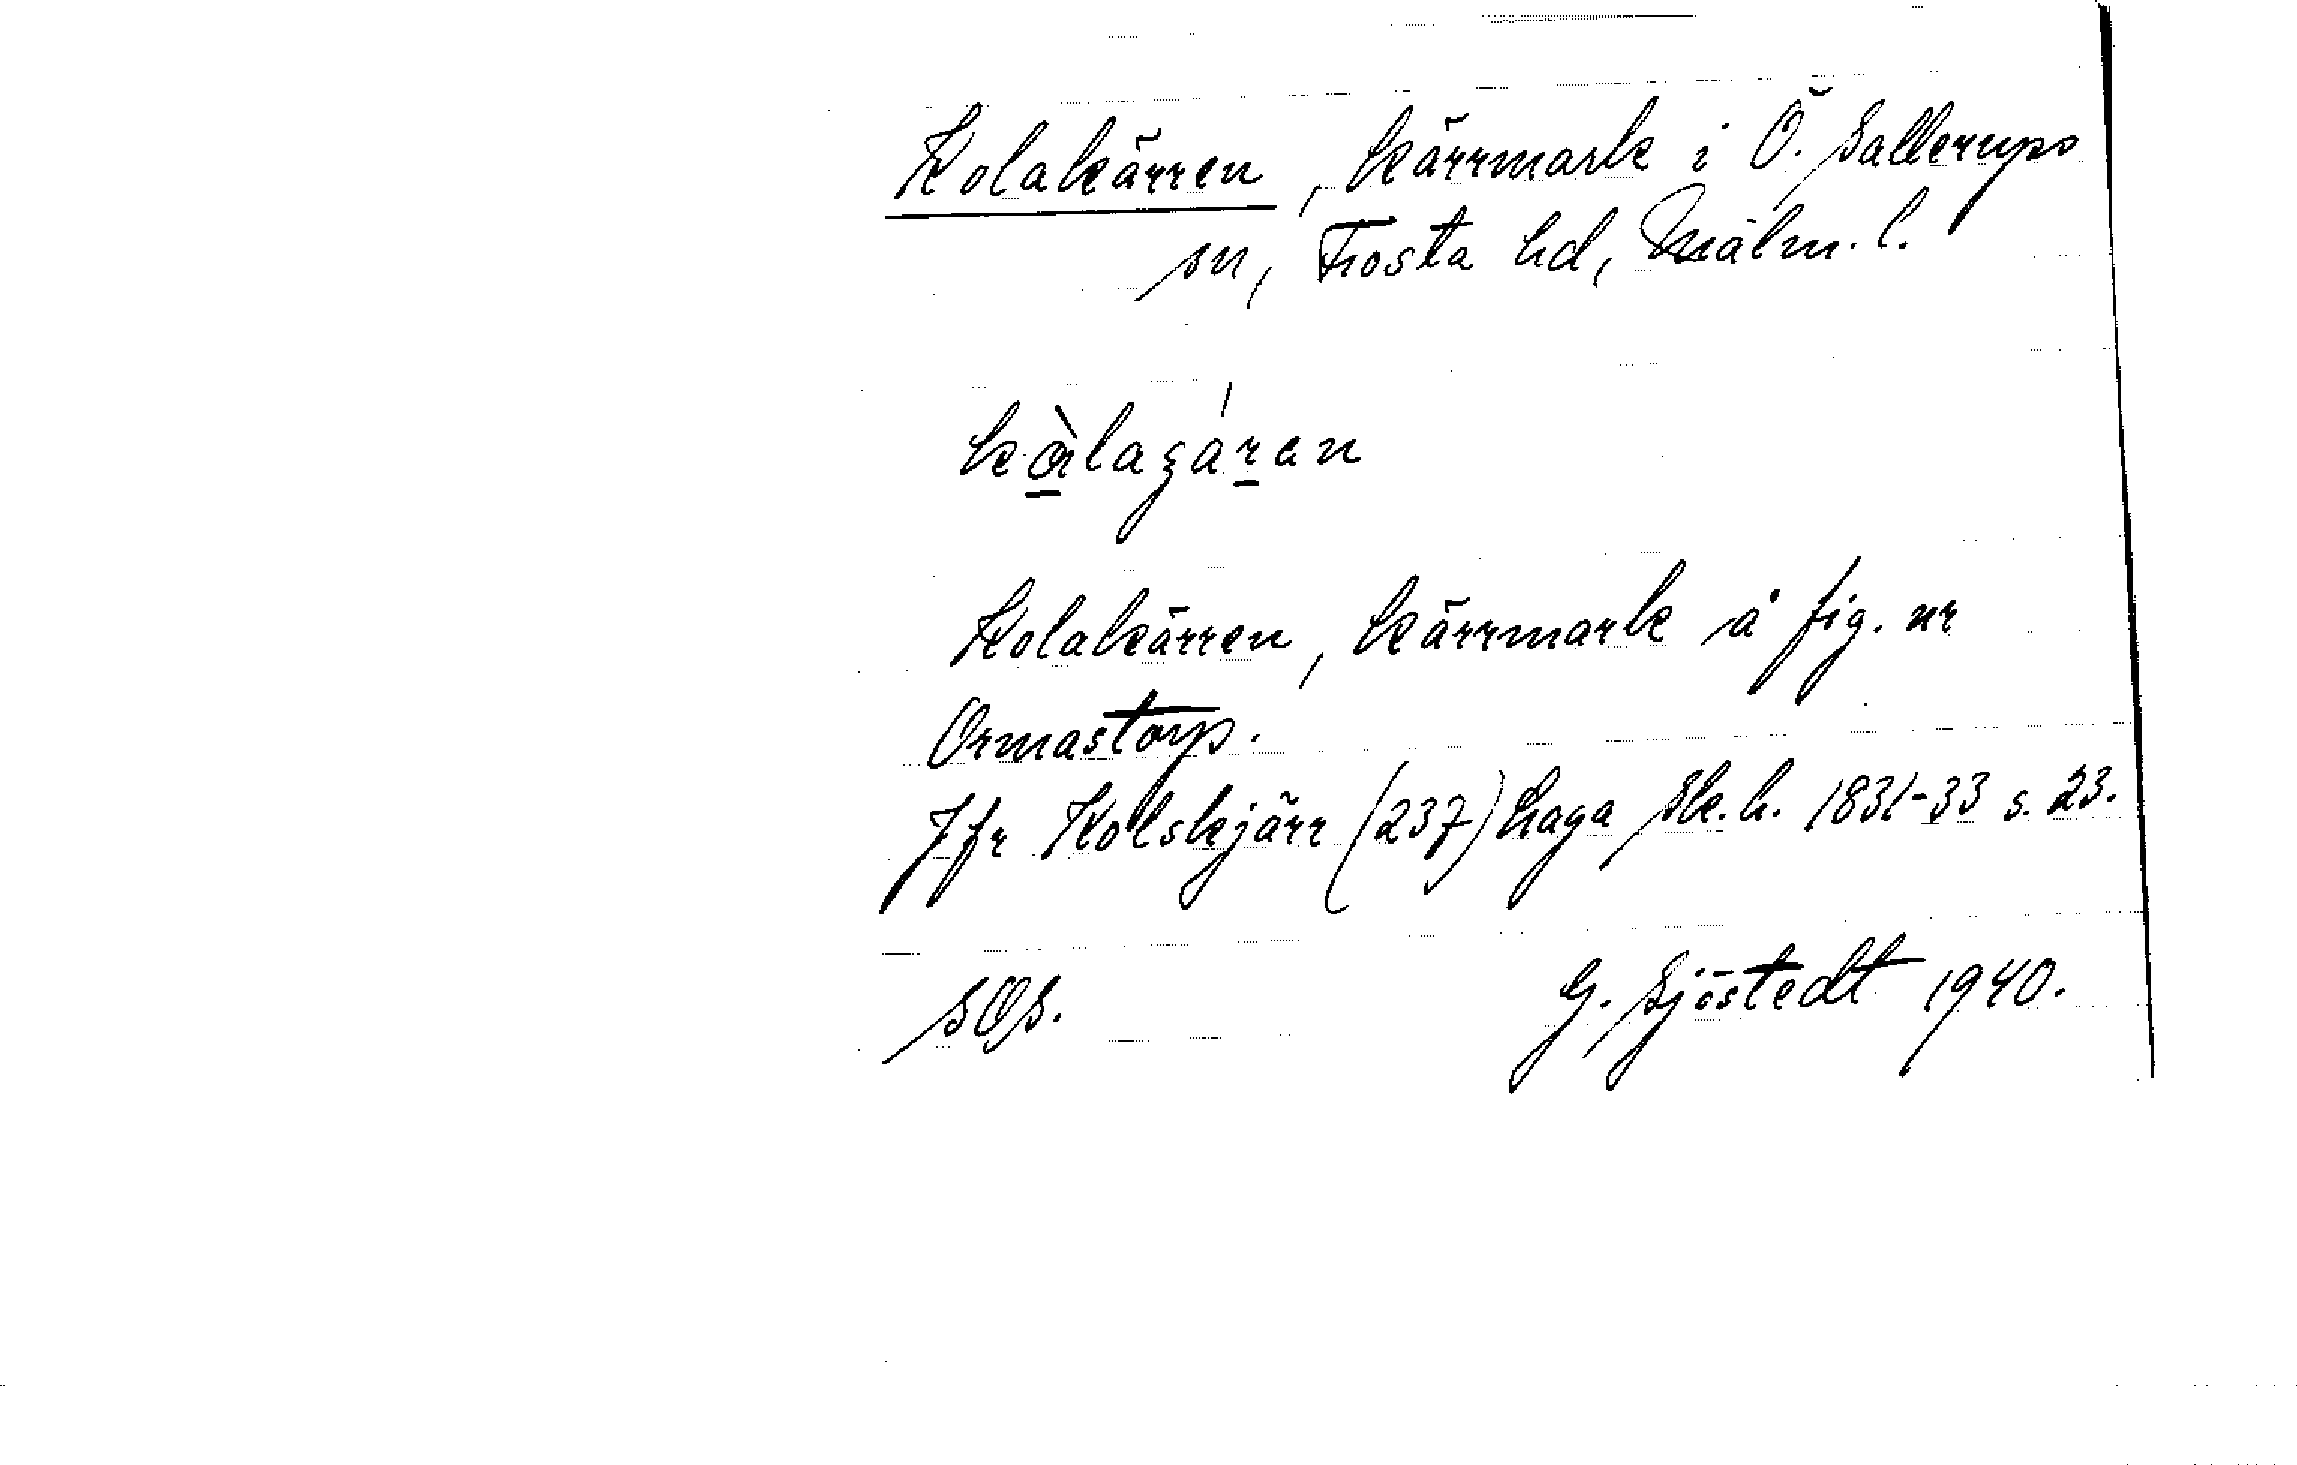 Kolakärren, kärrmark i Ö. Sallerups
sn, Frosta hd, Malm. l.
Kolakärren, kärrmark å fig. nr
Ormastorp.
Jfr Kolskjärr (237) haga sk.h. 1831-33 s. 23.
SOS.
G. Sjöstedt 1940.